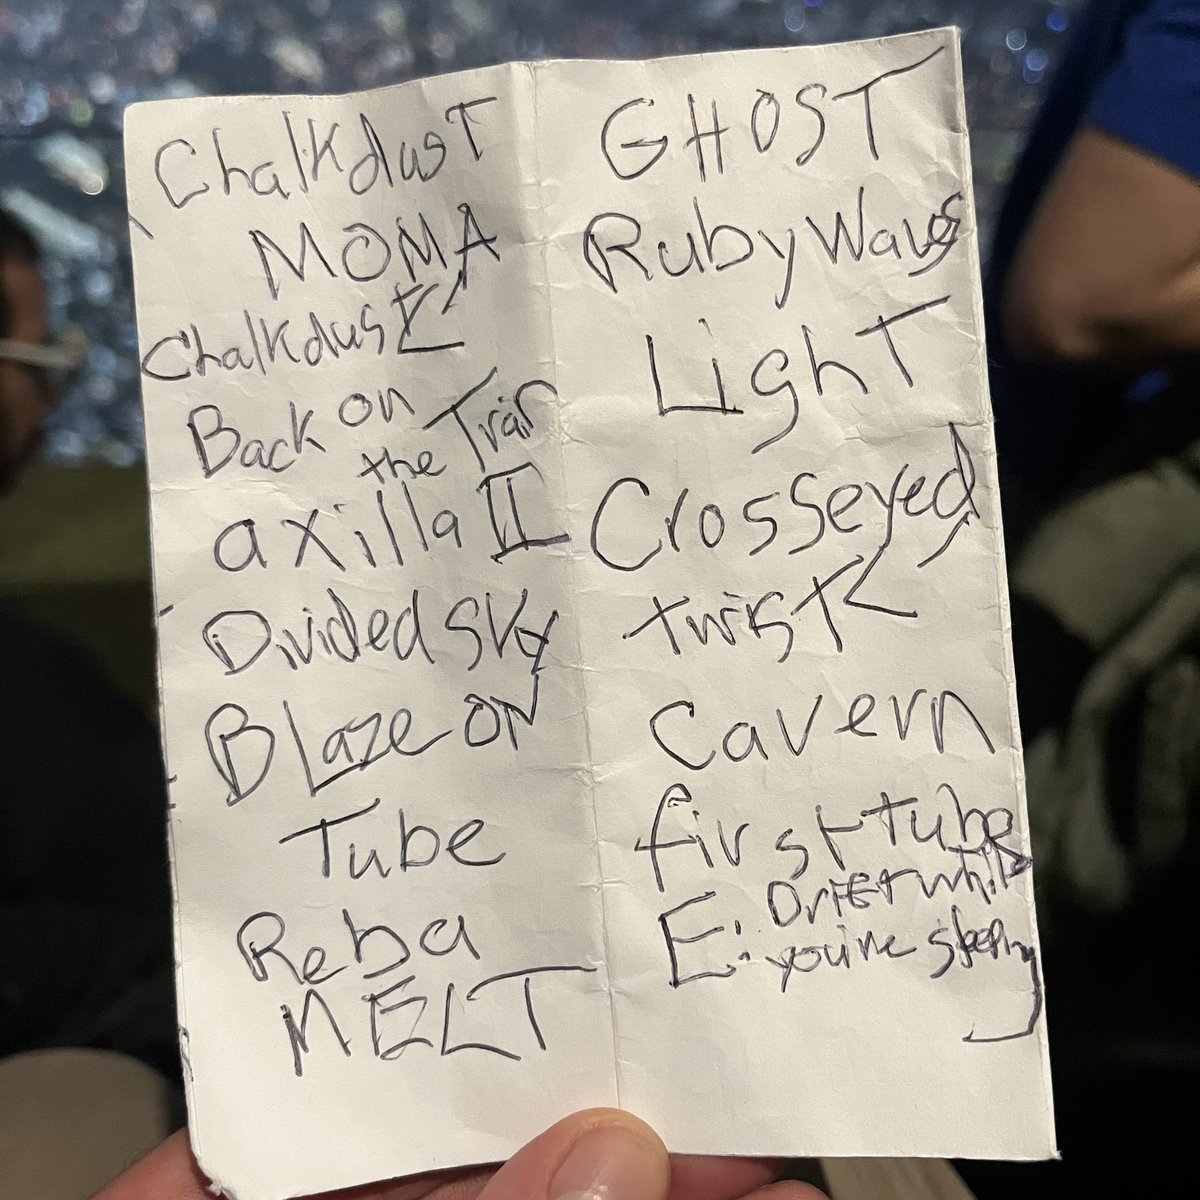 ChalKdusT
MOMA
ChalKdust
Back on
the Train
axilla II
Divided sky
BLaze on
Tube
Reba
MELT
GHOST
Ruby Waves
LighT
Crosseyed
twist <
Cavern
first tube
E: Drift while
you're sleeping